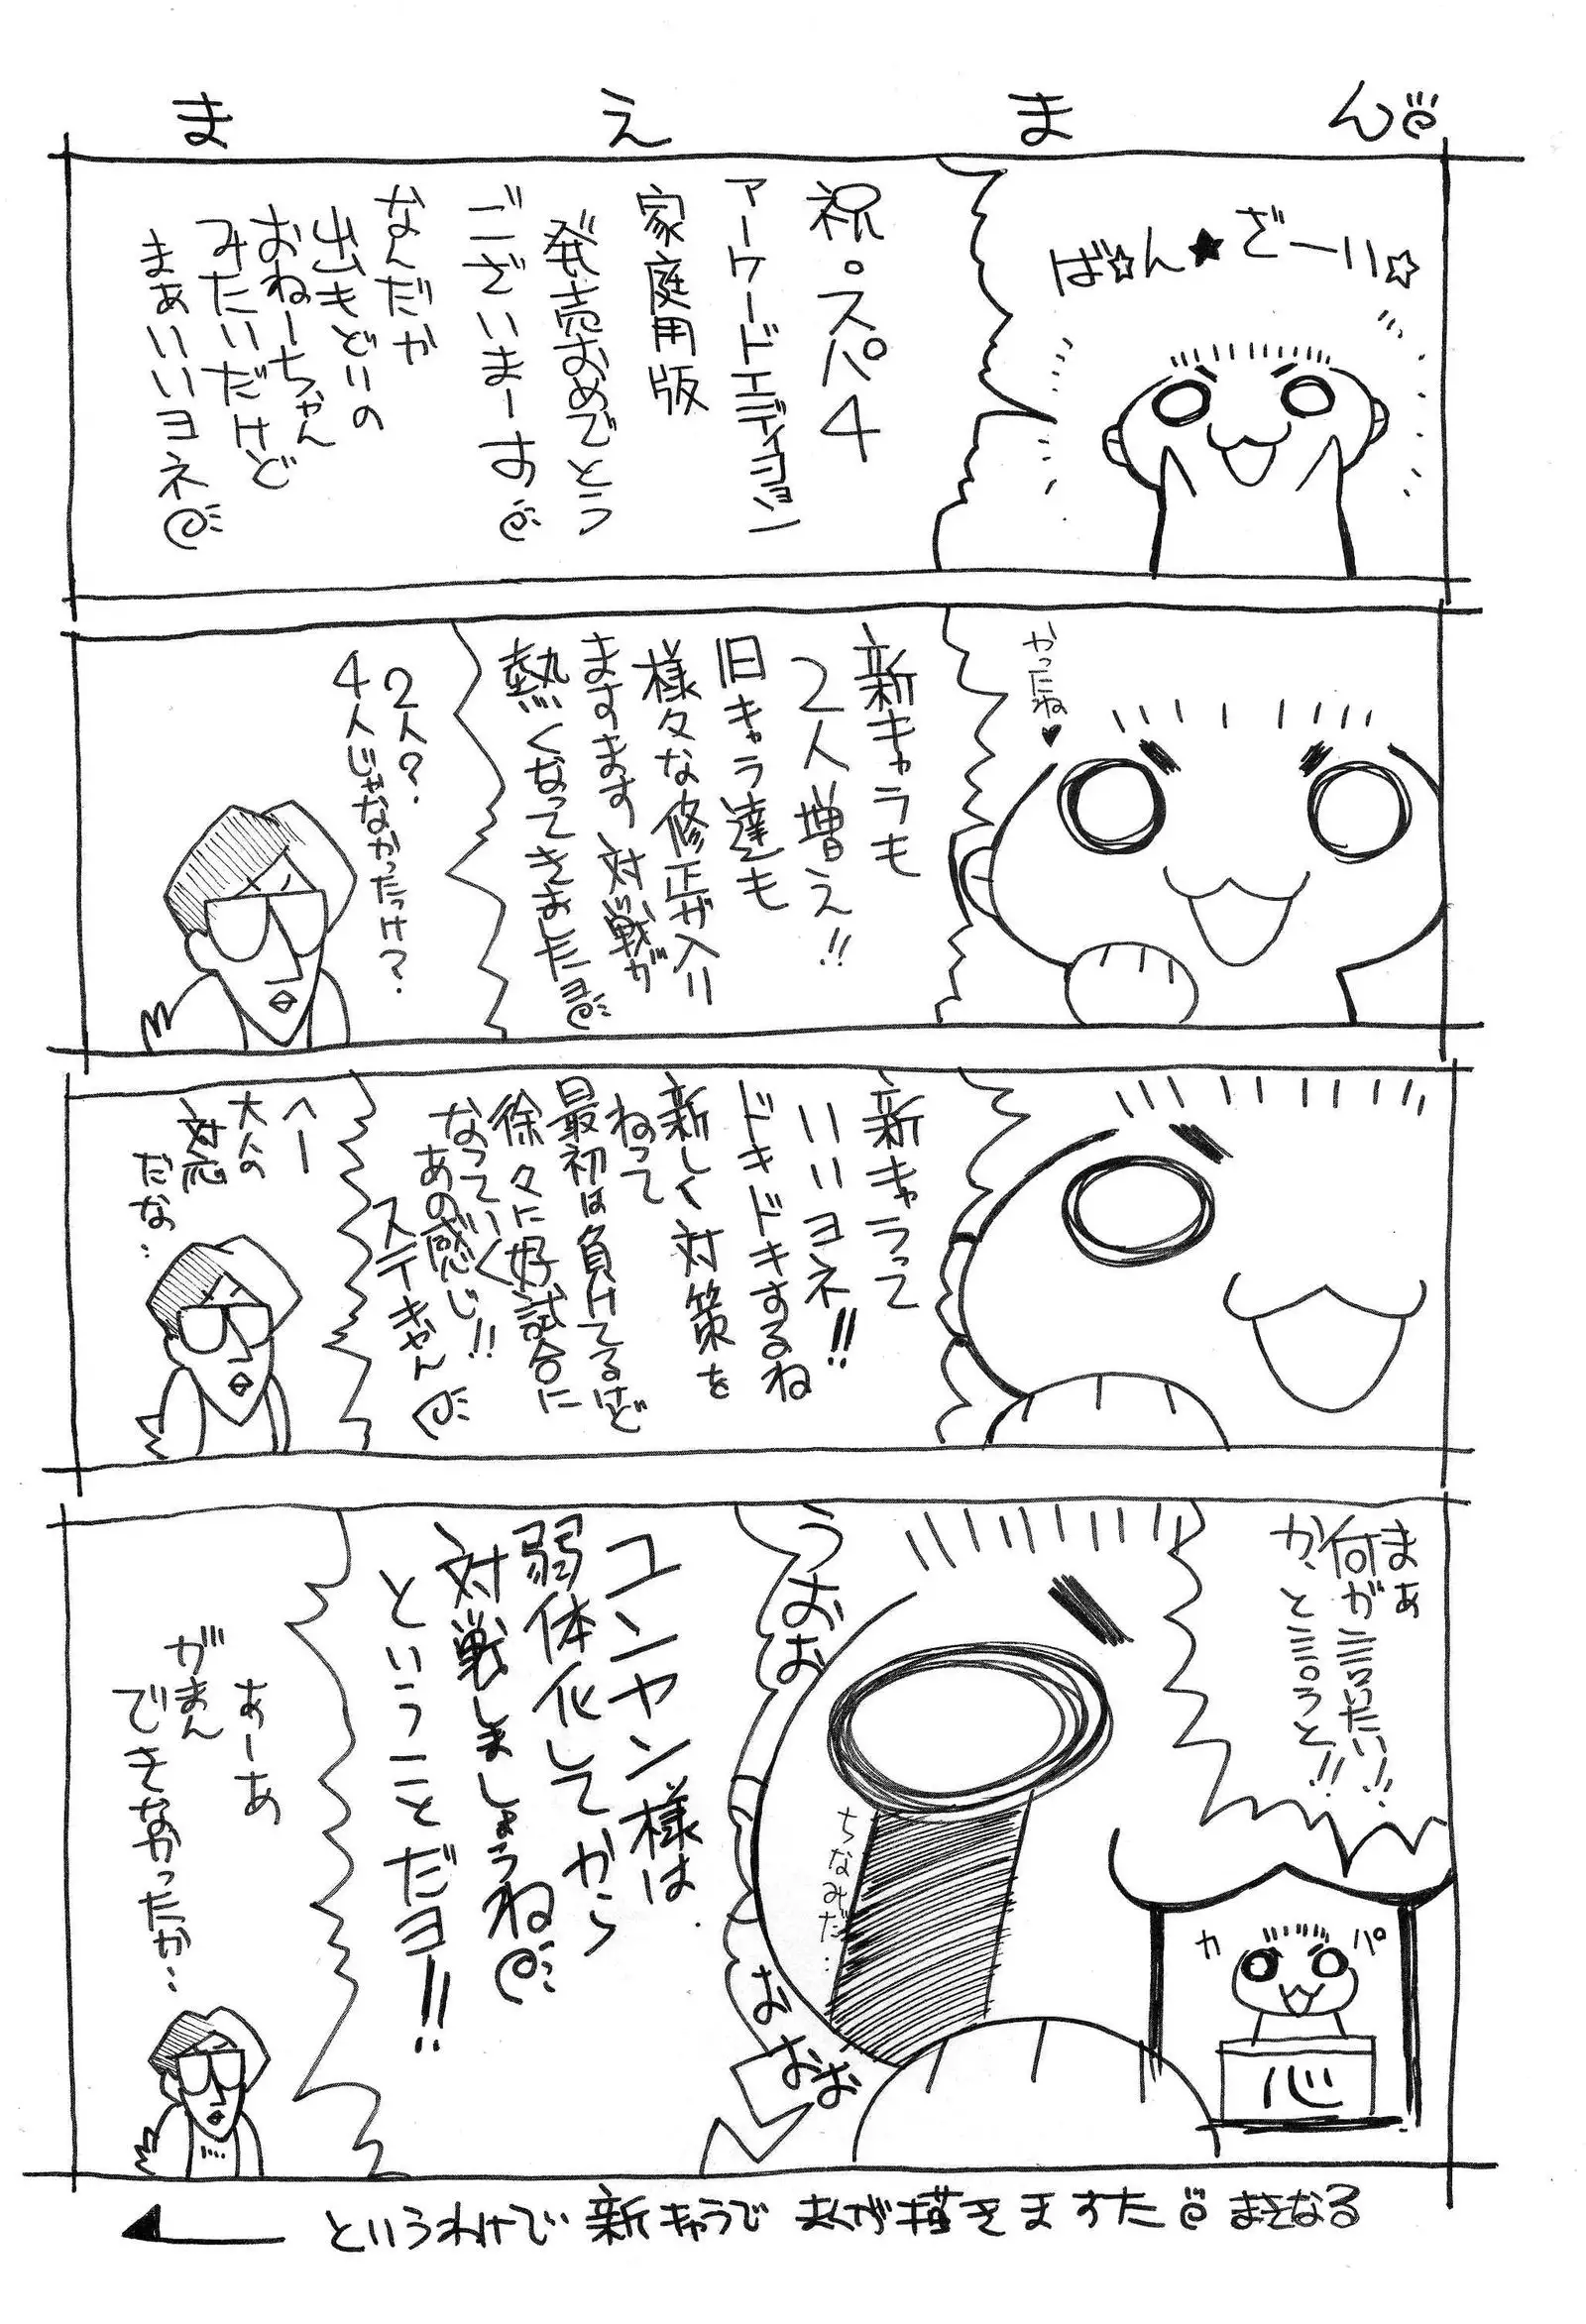 まえまん
ば☆ん★ざーい☆
祝・スパ4
アーケードエディション
家庭用版
発売おめでとう
ございまーす
なんだか
出もどりの
おねーちゃん
みたいだけど
まぁいいヨネ
やったね♥
新キャラも
2人増え!!
旧キャラ達も
様々な修正が入り
ますます対戦が
熱くなってきましたヨ
2人?
4人じゃなかったっけ?
新キャラって
いいヨネ!!
ドキドキするね
新しく対策を
ねって
最初は負けてるけど
徐々に好試合に
なっていく
あの感じ!!
ステキやん
へー
大人の
対応
だな…
まぁ
何が言いたい!!
か、と言うと!!
うおお
おおお
ちなみだ…
カパ
心
ユンヤン様は
弱体化してから
対戦しましょうね
ということだヨ!!
あーあ
がまん
できなかったか…
というわけで新キャラでまんが描きますた まさなる